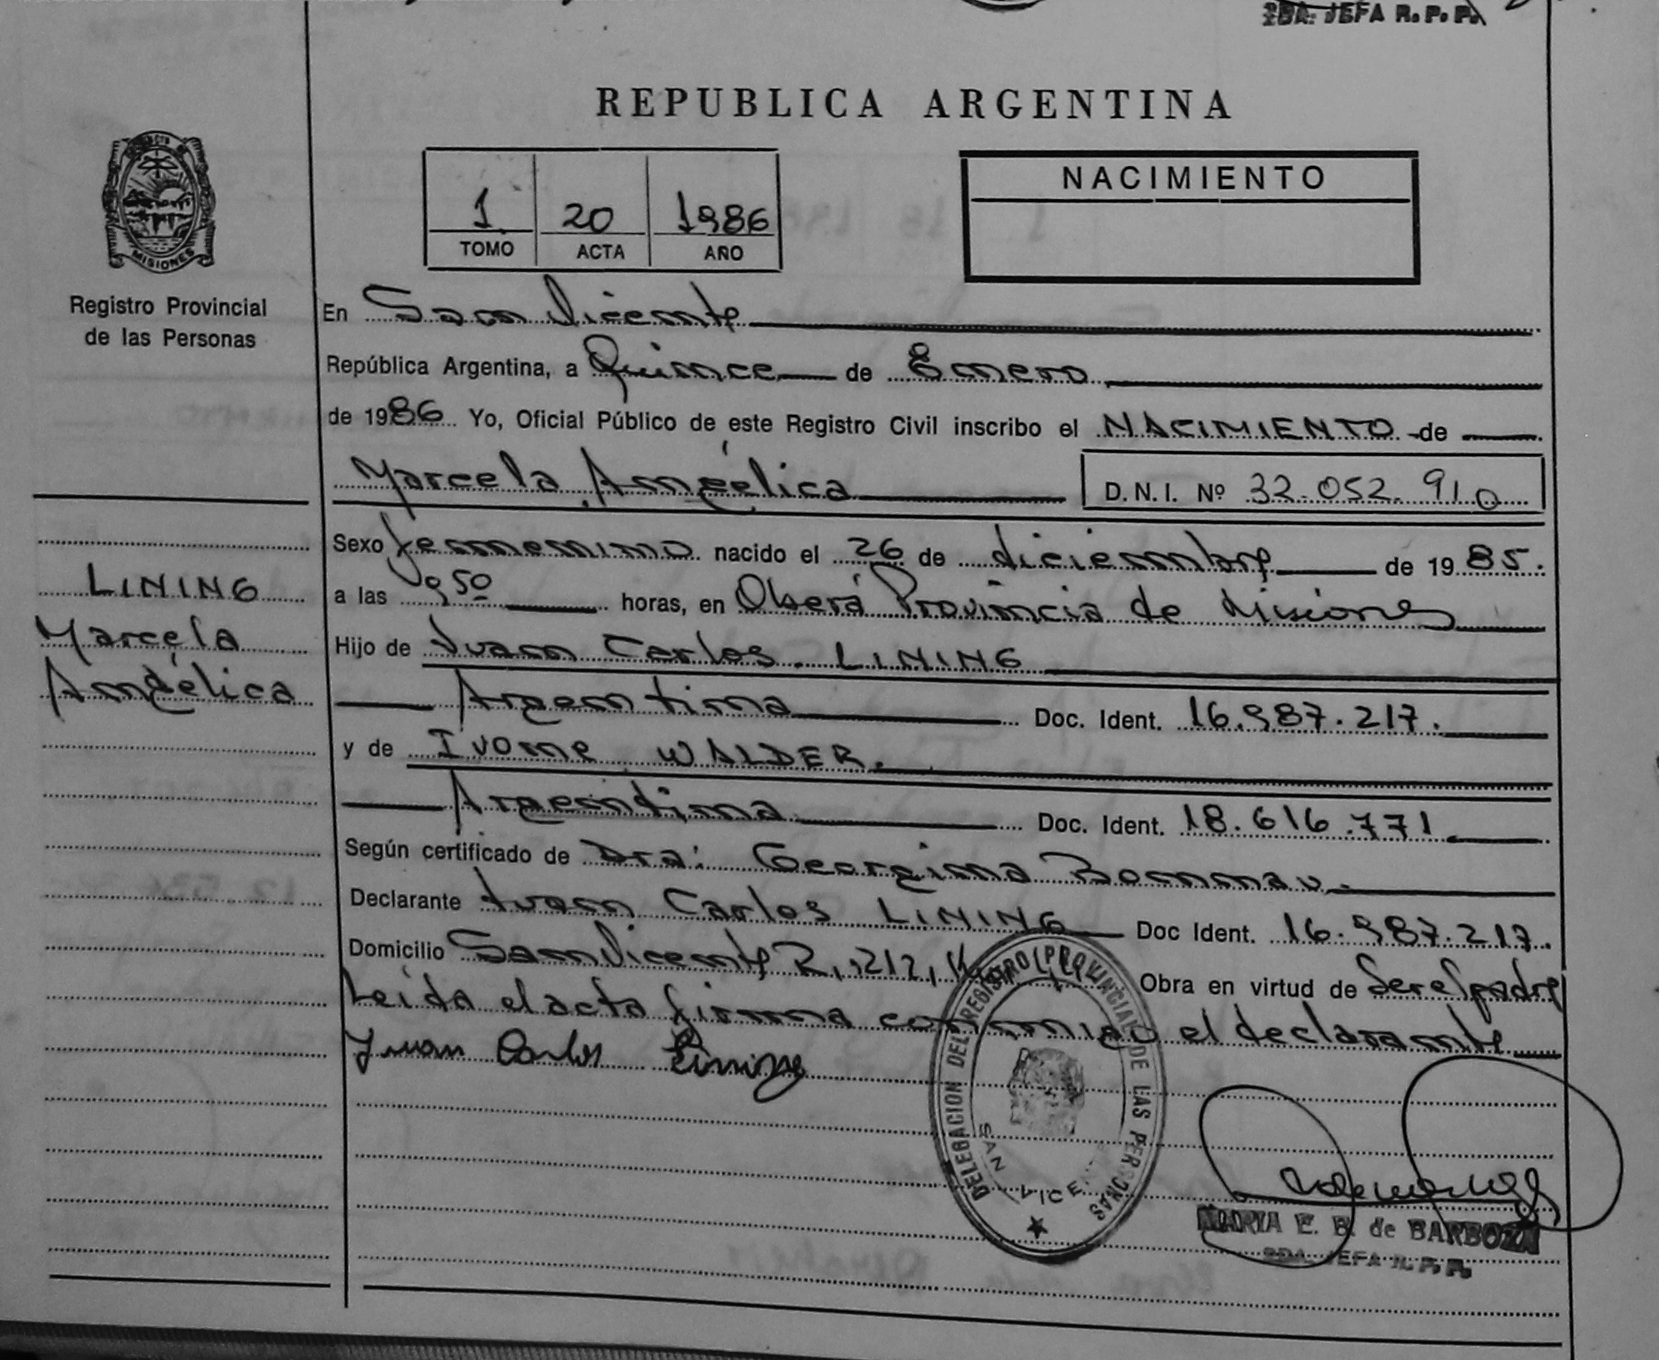 2DA. JEFA R. P. P.
REPUBLICA ARGENTINA
NACIMIENTO
1 20 1986
TOMO ACTA AÑO
MISIONES
Registro Provincial
de las Personas
En San Vicente
República Argentina, a Quince de Enero
de 1986 Yo, Oficial Público de este Registro Civil inscribo el NACIMIENTO de
Marcela Angélica D.N.I. Nº 32.052.910
Sexo femenino nacido el 26 de diciembre de 1985.
a las 9,50 horas, en Oberá Provincia de Misiones
Hijo de Juan Carlos LINING
Argentina Doc. Ident. 16.987.217.
y de Ivone WALDER.
Argentina Doc. Ident. 18.616.771.
Según certificado de Dra: Georgina Bonnnau.
Declarante Juan Carlos LINING Doc Ident. 16.987.217.
Domicilio San Vicente R, 212, K Obra en virtud de Ser el padre
Leída el acta firma conmigo el declarante
Juan Carlos Lining
LINING
Marcela
Angélica
DELEGACION DEL REGISTRO PROVINCIAL DE LAS PERSONAS
SAN VICENTE
MARIA E. B. de BARBOZA
2DA. JEFA R. P. P.